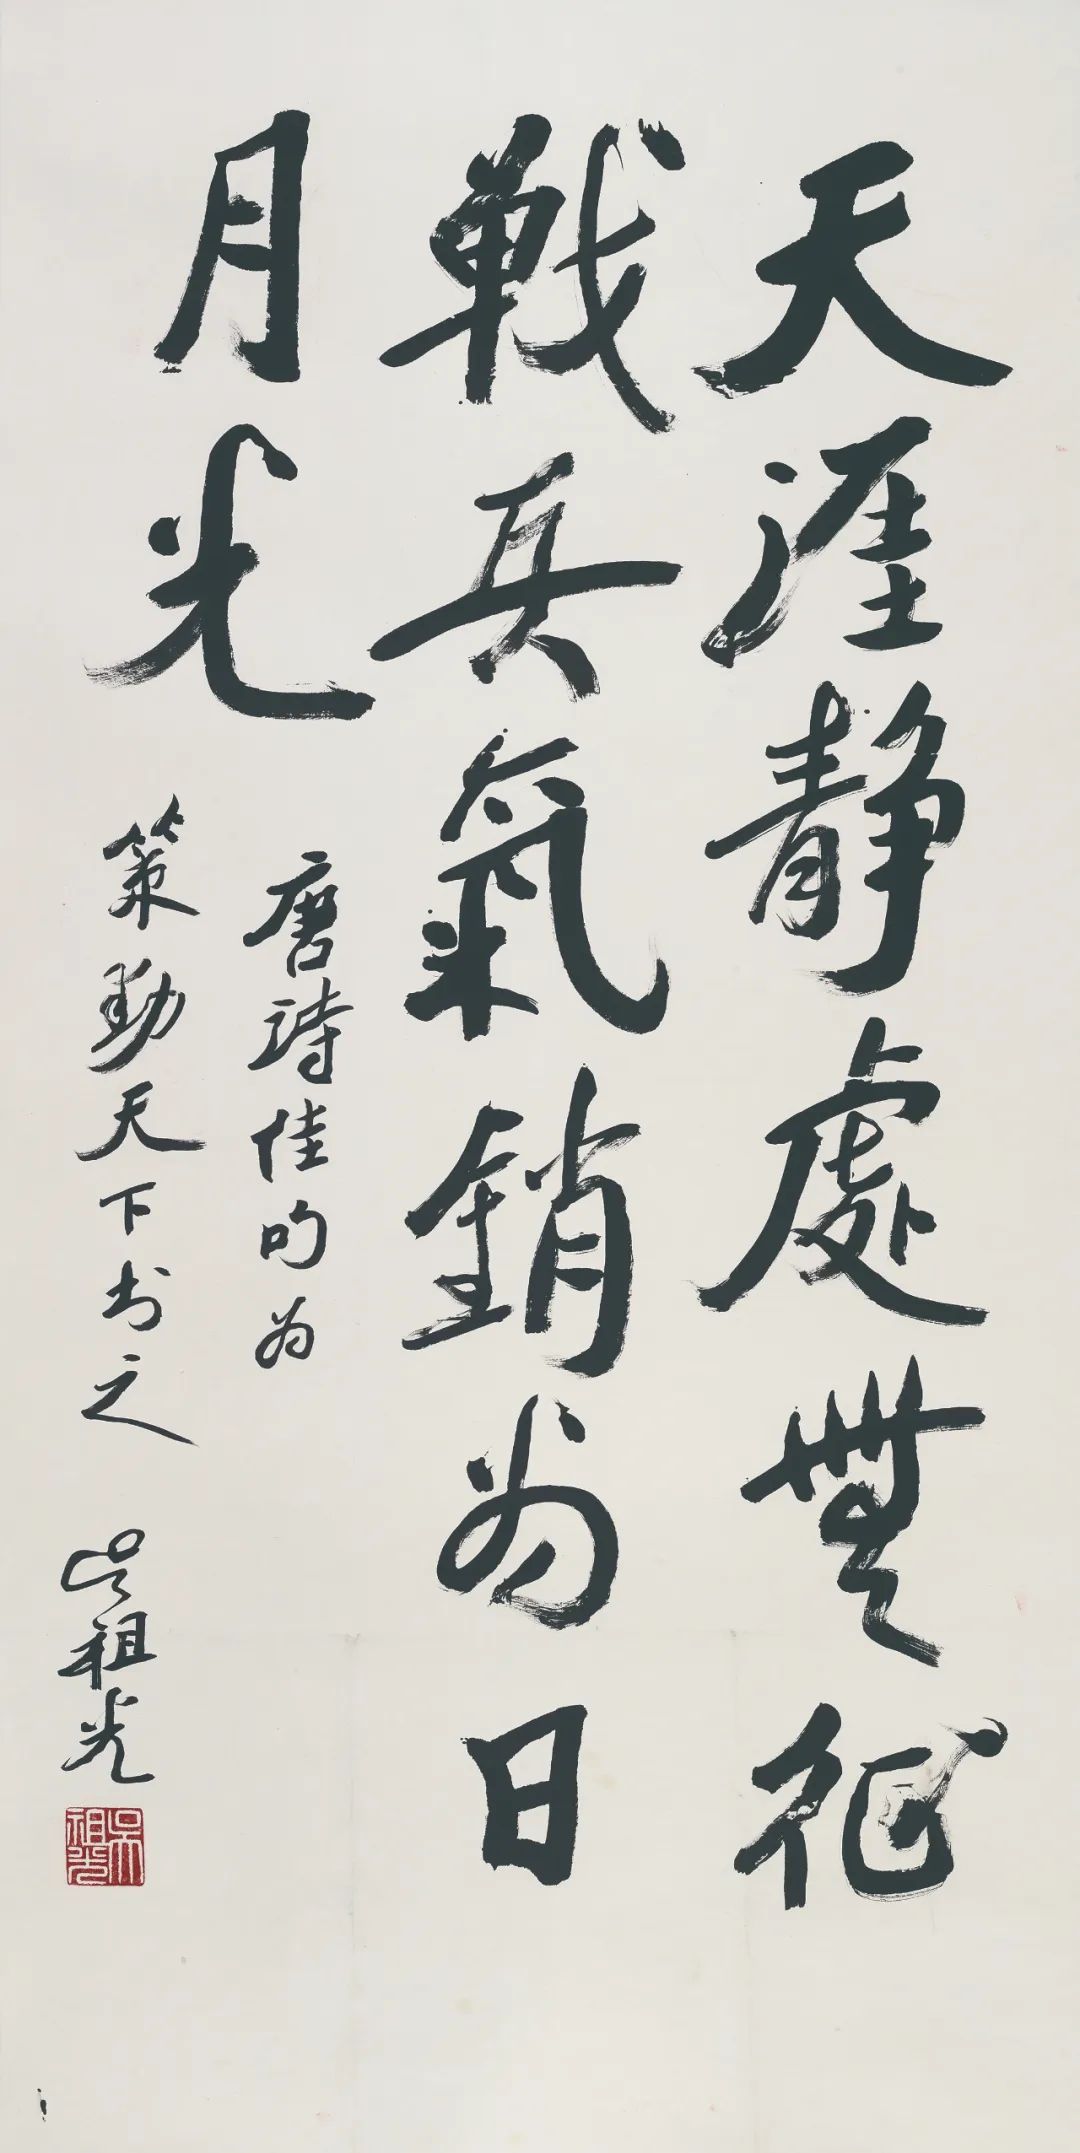 天涯静處無征
戰兵氣銷为日
月光
唐詩佳句为
策勳天下书之
吴祖光
吳祖光